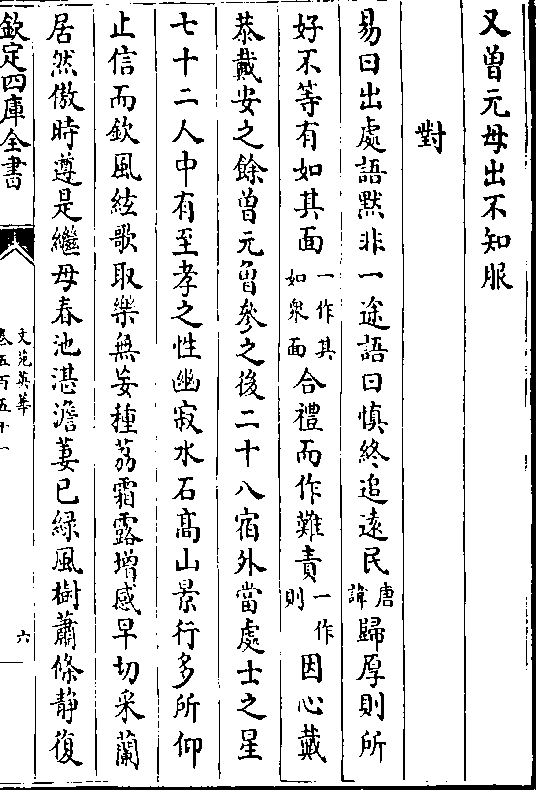 又曾元母出不知服
對
易曰出處語默非一途語曰慎終追遠民唐諱歸厚則所
好不等有如其面一作其如衆面合禮而作難責一作則因心戴
恭戴安之餘曾元曾參之後二十八宿外當處士之星
七十二人中有至孝之性幽寂水石髙山景行多所仰
止信而欽風絃歌取樂無妄種荔霜露增感早切采蘭
居然傲時遵是繼母春池湛澹萋已綠風樹蕭條静復
欽定四庫全書
文苑英華
卷五百五十一
六